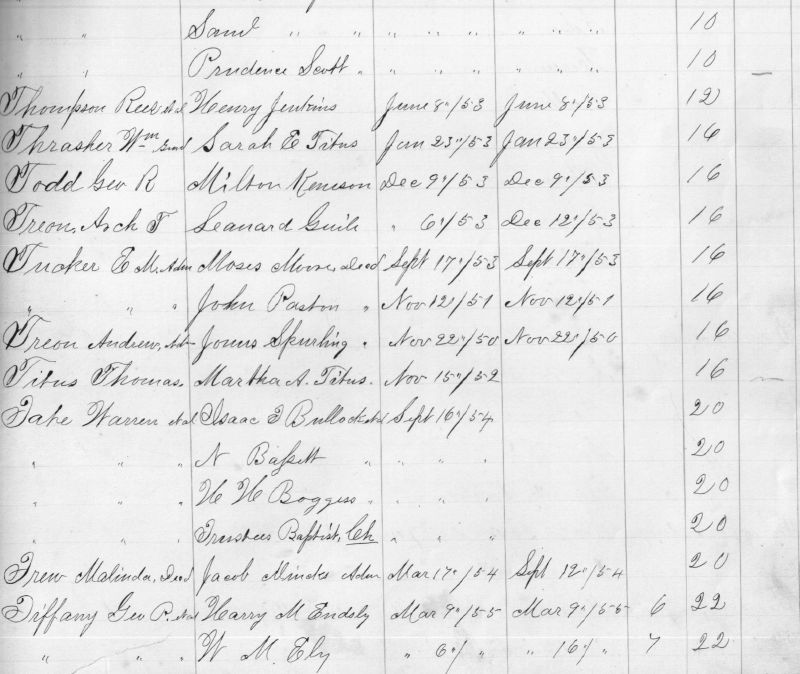 " " Saml " " " " " " " " 10
" " Prudence Scott " " " " " " " 10
Thompson Rees et al Henry Jenkins June 8"/53 June 8"/53 12
Thrasher Wm Gard Sarah E Titus Jan 23"/53 Jan 23"/53 16
Todd Geo R Milton Keneson Dec 9"/53 Dec 9"/53 16
Treon, Arch T Leanard Guile " 6"/53 Dec 12"/53 16
Tucker E M, Adm Moses Moore, Decd Sept 17"/53 Sept 17"/53 16
" " " John Paston " Nov 12"/51 Nov 12"/51 16
Treon Andrew, Adm Spurling " Nov 22"/50 Nov 22"/50 16
Titus Thomas, Martha A. Titus. Nov 15"/52 16
Tate Warren et al Isaac Bullock et al Sept 16"/54 20
" " " N Bassett " " " " 20
" " " H H Boggess " " " " 20
Trustees Baptist, Ch " " " 20
Trew Malinda, Decd Jacob Mindes Adm Mar 17"/54 Sept 12"/54 20
Tiffany Geo P. et al Harry M Endsly Mar 9"/55 Mar 9"/55 6 22
" " " W M. Ely " 6"/ " " 16"/ " 7 22